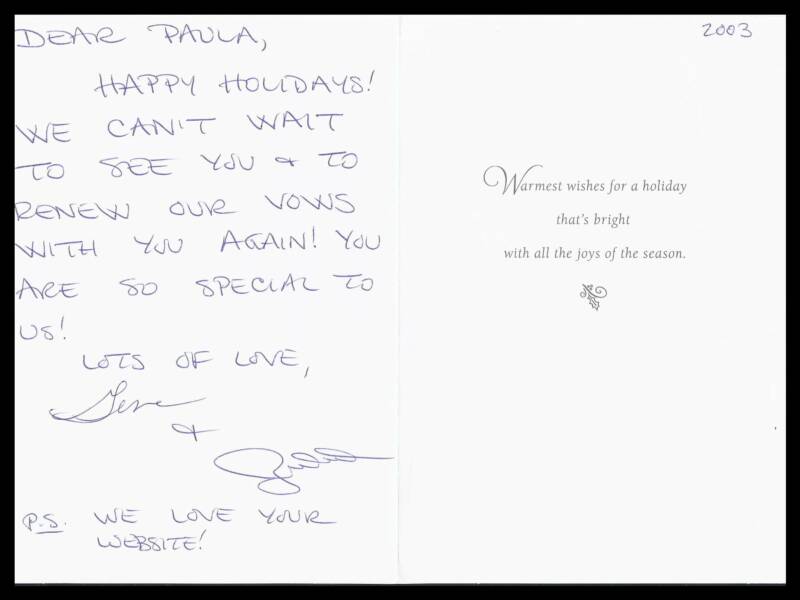 DEAR PAULA,
HAPPY HOLIDAYS!
WE CAN'T WAIT
TO SEE YOU & TO
RENEW OUR VOWS
WITH YOU AGAIN! YOU
ARE SO SPECIAL TO
US!
LOTS OF LOVE,
Gene
&
P.S. WE LOVE YOUR
WEBSITE!
2003
Warmest wishes for a holiday
that's bright
with all the joys of the season.